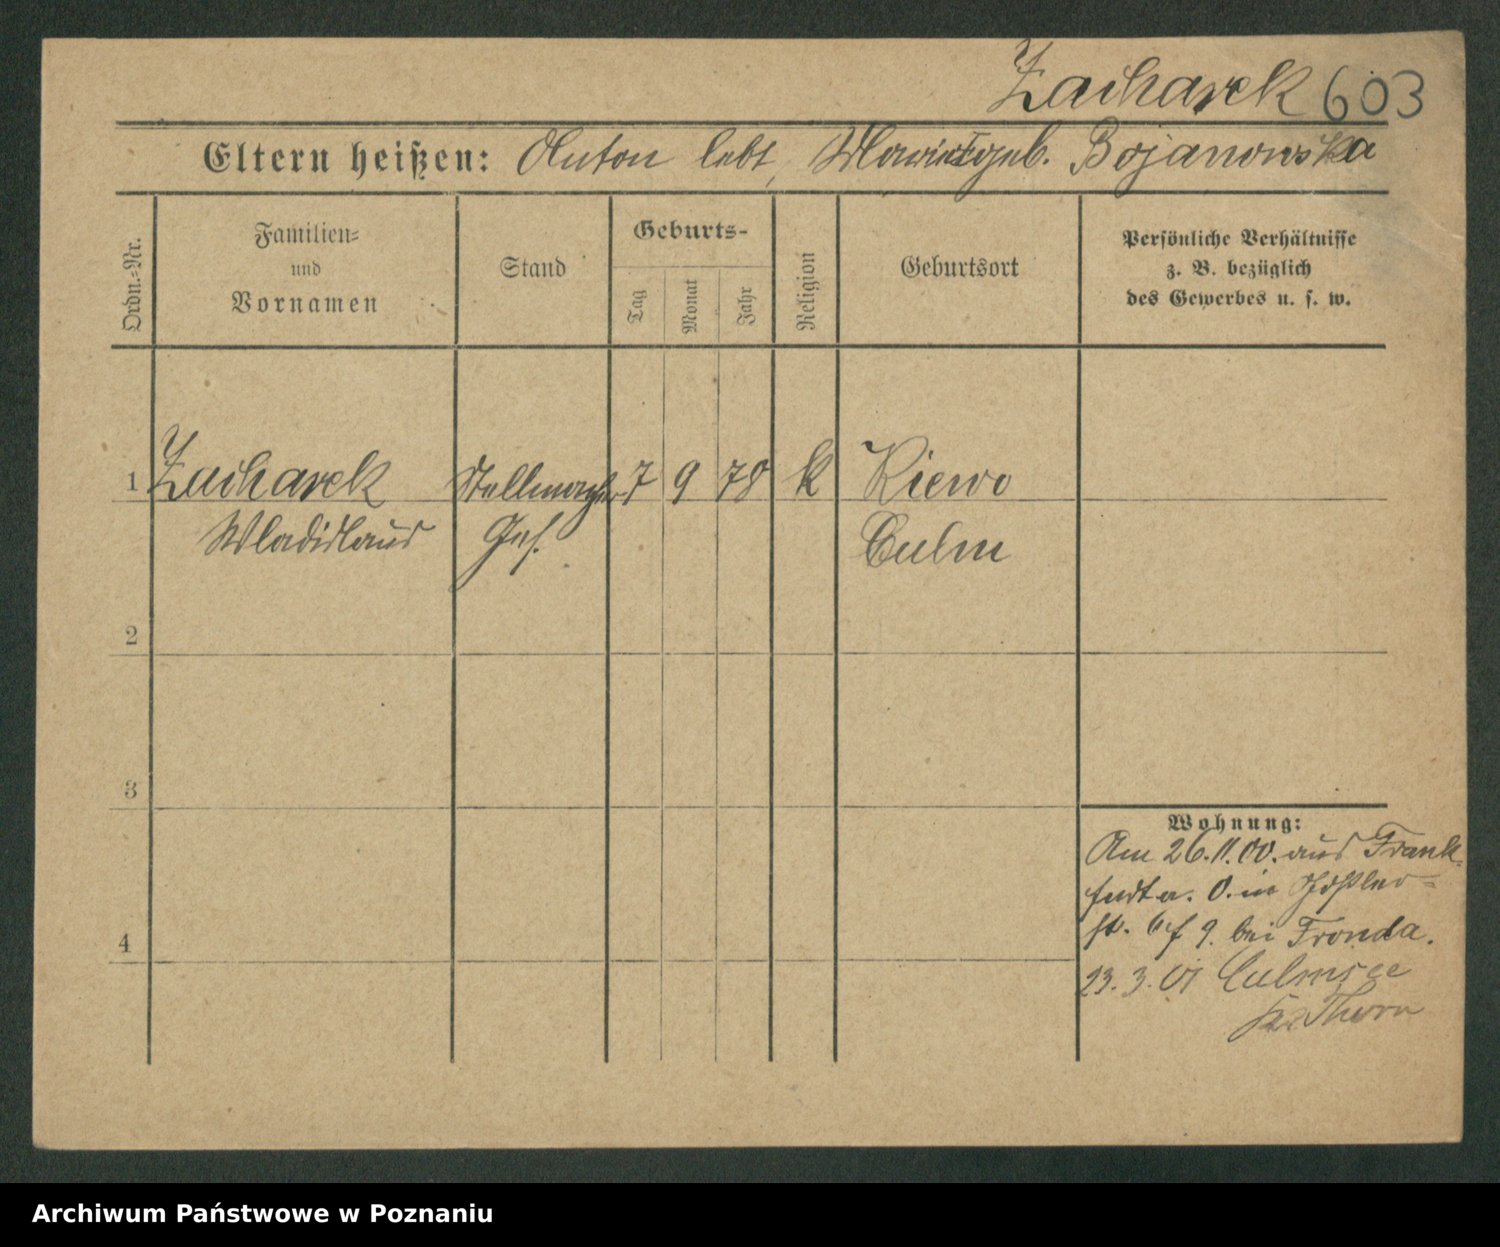 Zacharek 603
Eltern heißen: Anton lebt, Marie geb. Bojanowska
Ordn.-Nr.
Familien-
und
Vornamen
Stand
Geburts-
Tag
Monat
Jahr
Religion
Geburtsort
Persönliche Verhältnisse
z. B. bezüglich
des Gewerbes u. s. w.
1 Zacharek Stellmacher 7 9 78 k Kiewo
Wladislaus Ges. Culm
2
3
4
Wohnung:
Am 26.11.00. aus Frank-
furt a. O. in
st. 6 9. bei Fronda.
23.3.01 Culmsee
Thorn
Archiwum Państwowe w Poznaniu